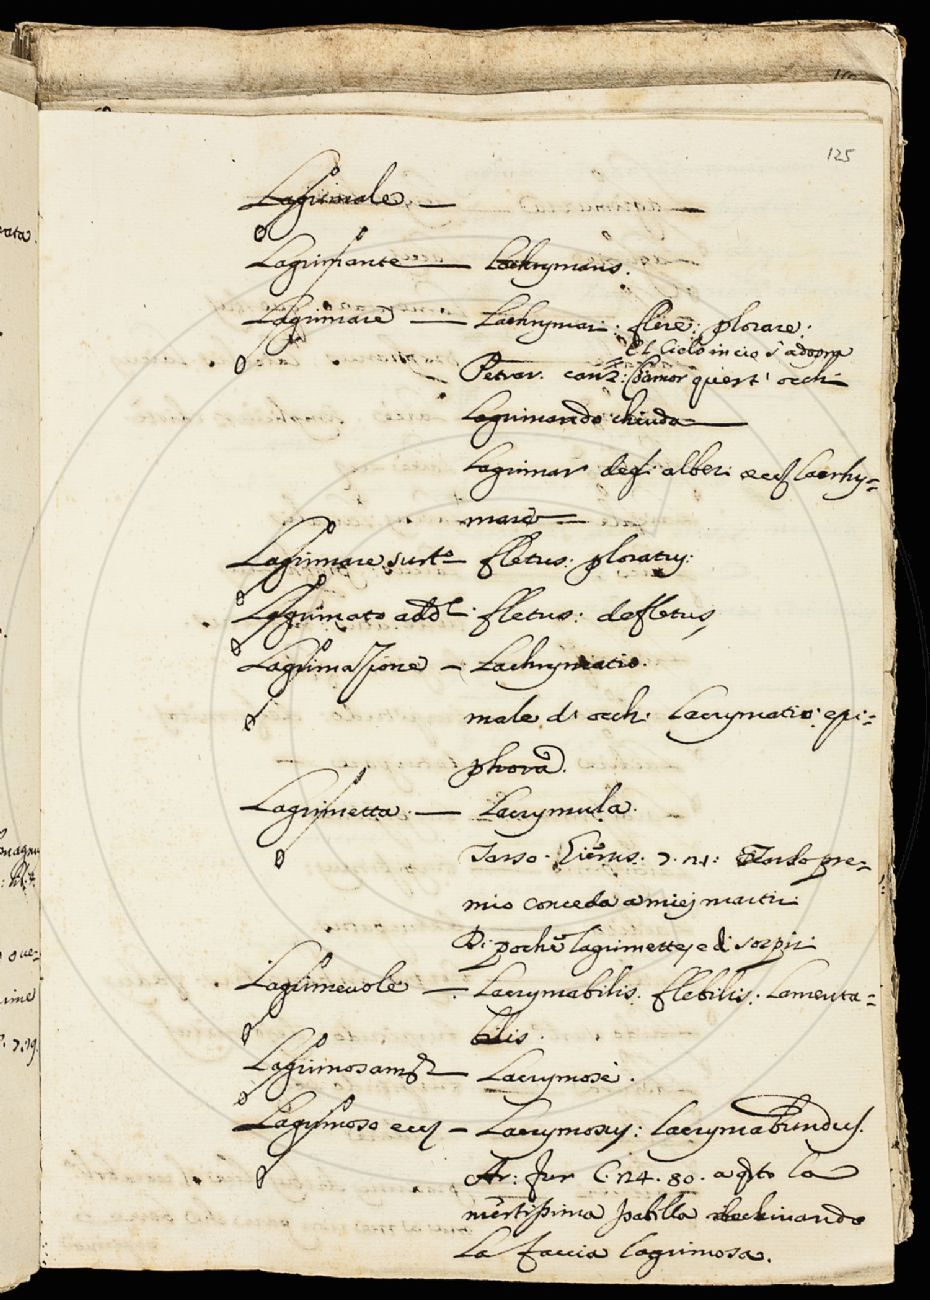 125
Lagrimale —
Lagrimante — Lachrymans.
Lagrimare — Lachrymari. flere: plorare.
El Cielo in cio s'adopra
Petrar. canz. 2: Ch'amor quest' occhi
Lagrimando chiuda —
Lagrimar degli alberi ecc Lacrhy=
mare —
Lagrimare sust.o — fletus: ploratus:
Lagrimato add. fletus: defletus,
Lagrimazione — Lachrymatio.
male di occhi Lacrymatio: epi=
phora.
Lagrimetta. — Lacrymula.
Tasso. 7. 21: pre=
mio conceda a miei martiri
Di poche lagrimette, e di sospiri
Lagrimevole — Lacrymabilis. flebilis. Lamenta=
bilis.
Lagrimosam.te — Lacrymose.
Lagrimoso ecc — Lacrymosus: lacrymabundus.
Ar: fur C. 24. 80. a q.to la
mestissima Isabella declinando
La faccia lagrimosa.
ime
7. 19.